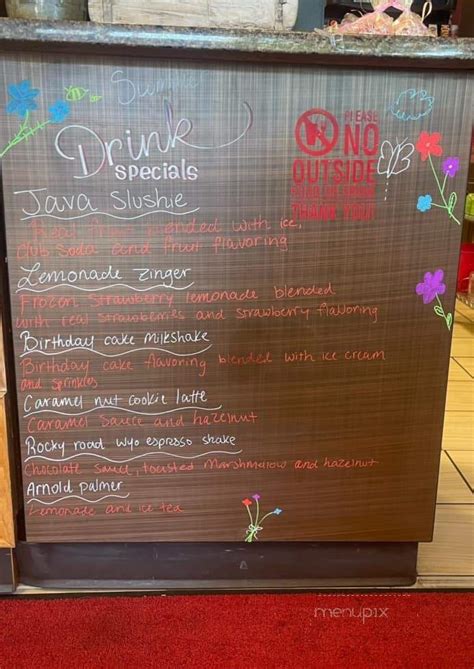 Summer
Drink
specials
PLEASE
NO
OUTSIDE
THANK YOU!
Java Slushie
Real fruit blended with ice,
club soda and fruit flavoring
Lemonade Zinger
Frozen strawberry lemonade blended
with real strawberries and strawberry flavoring
Birthday cake milkshake
Birthday cake flavoring blended with ice cream
and sprinkles
Caramel nut cookie latte
Caramel sauce and hazelnut
Rocky road wyo espresso shake
Chocolate sauce, toasted marshmallow and hazelnut
Arnold palmer
Lemonade and ice tea
menupix